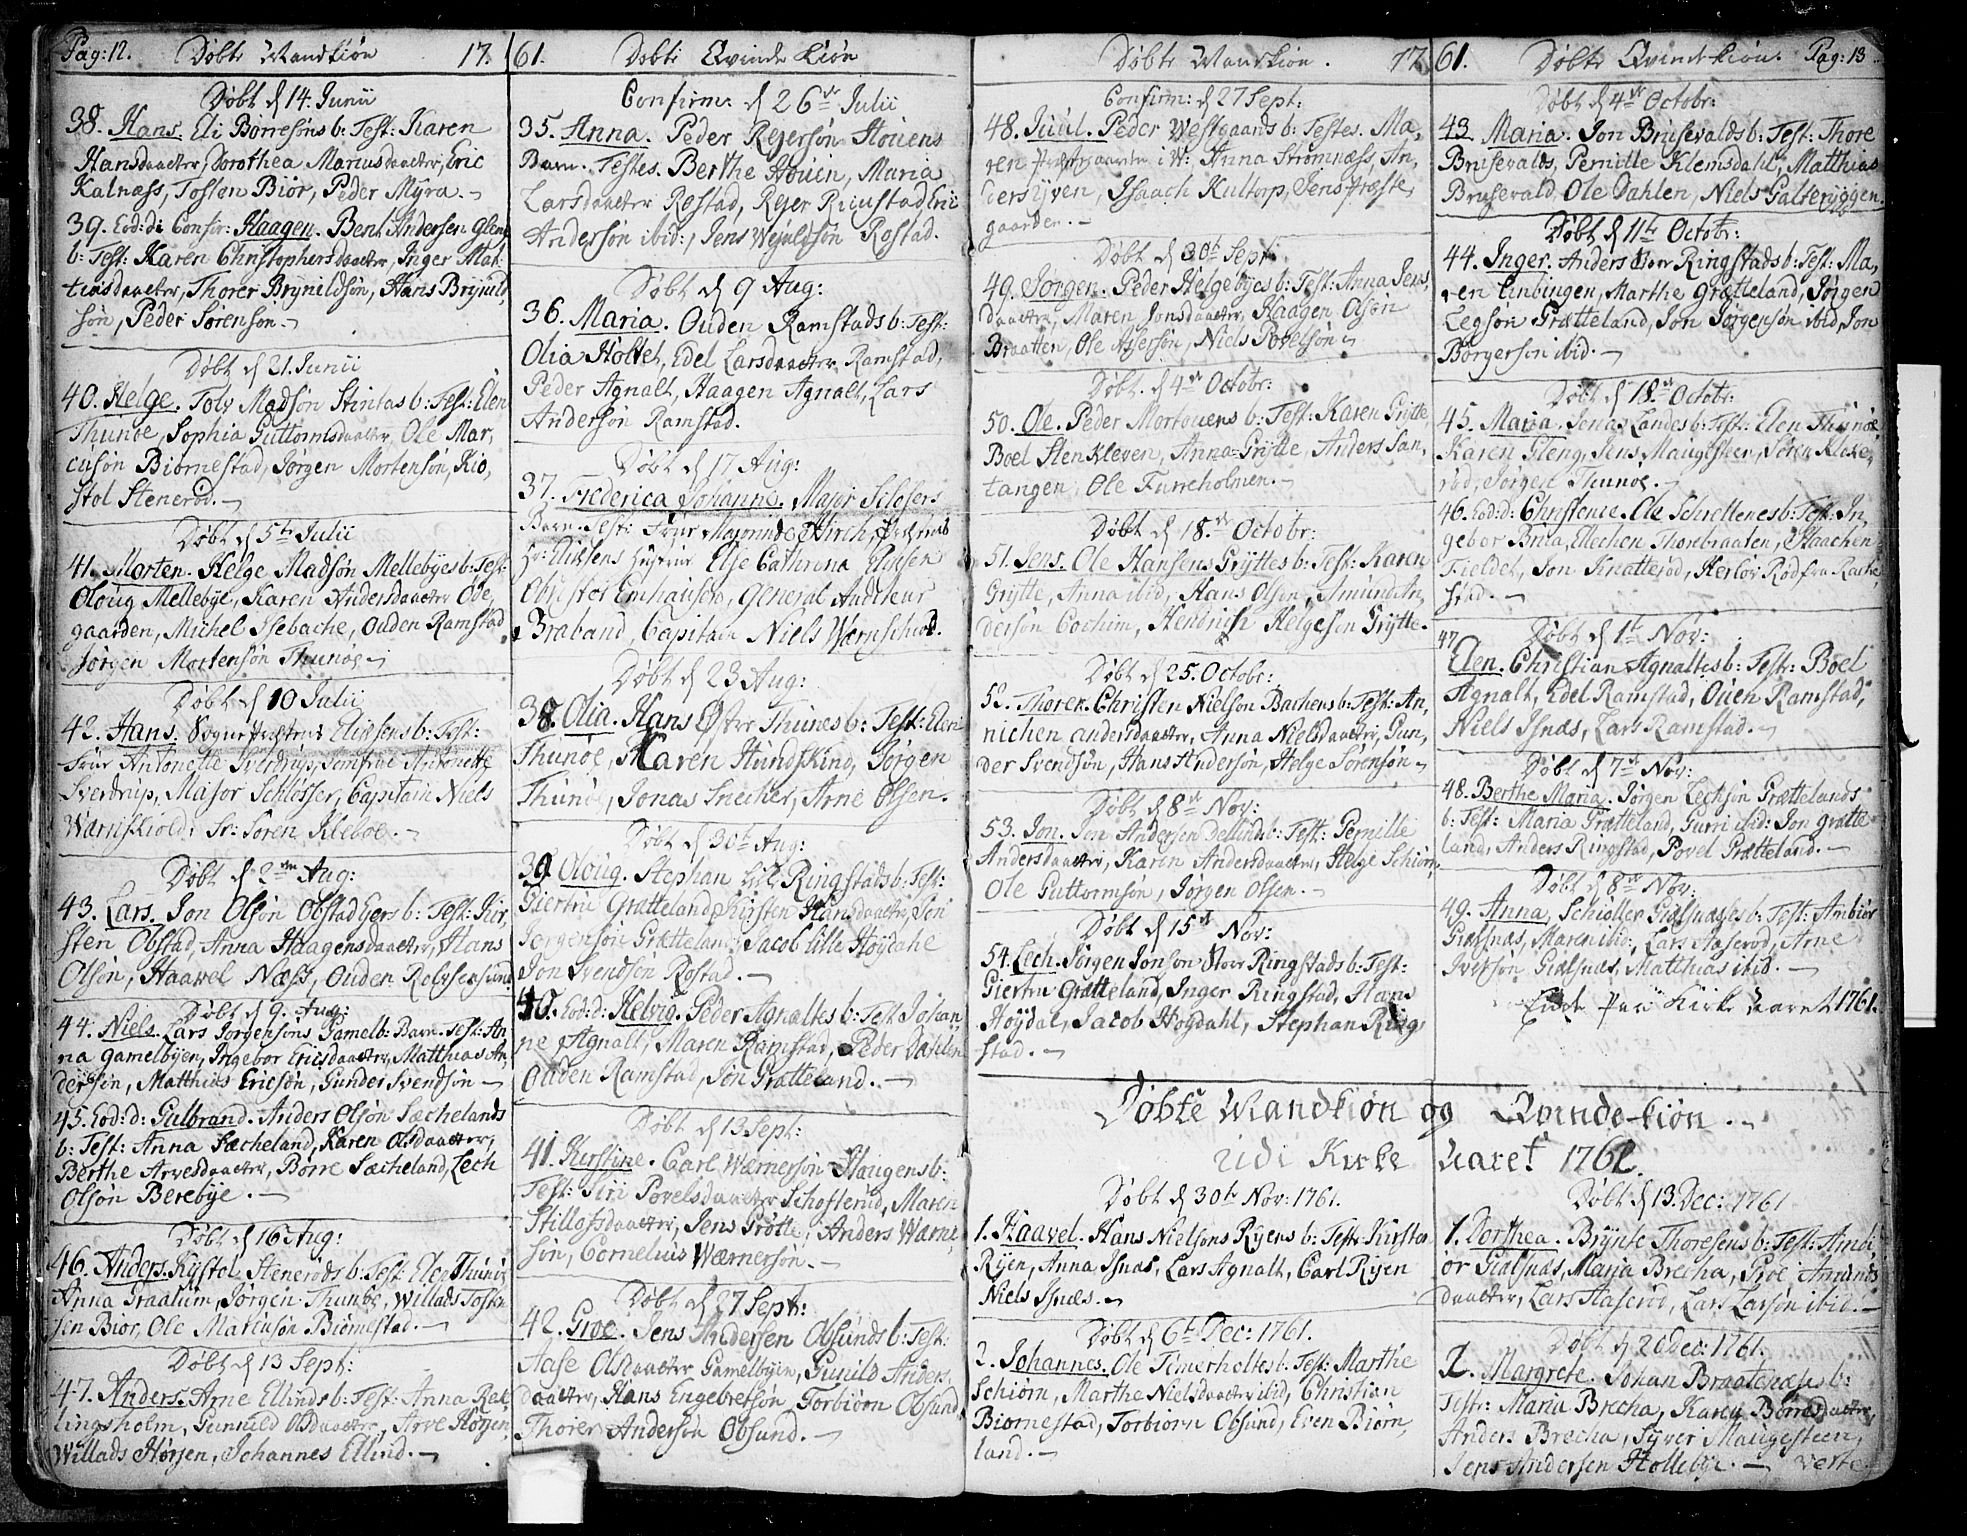 Pag: 12. Døbte Mandkiøn 17.
Døbt d 14. Junii
38. Hans. Eli Børresøns b: Test: Karen
Hansdaatter, Dorothea Mariusdaatter, Eric
Kalnæss, Tosten Biør, Peder Myra.
39. Eod: di Confir: Haagen. Bent Andersen Gleng
b: Test: Karen Christophersdaatter, Inger Mat-
tiasdaatter, Thorer Brynildsøn, Hans Brynild
søn, Peder Sørenson.
Døbt d 21. Junii
40. Helge. Tolv Madsøn Stintas b: Test: Elen
Thunøe, Sophia Guttormsdaatter, Ole Mar,
cusøn Biørnestad, Jørgen Mortensøn, Kio,
stol Stenerød.
Døbt d 5te Julii
41. Morten. Helge Madsøn Mellebyes b: Test:
Oloug Mellebye, Karen Andersdaatter Øde,
gaarden, Michel Isebache, Ouden Ramstad
Jørgen Mortensøn Thunøe
Døbt d 10 Julii
42. Hans. Sogne Præstens Eliesens b: Test:
Frue Antonette Sverdrup, Jomfrue Antonette
Sverdrup, Major Schlösser, Capitain Niels
Wærnskiold, Sr: Søren Kleboe.
Døbt d 2den Aug:
43. Lars. Jon Olsøn Obstad Eyers b: Test: Kir,
sten Obstad, Anna Haagensdaatter, Hans
Olsøn, Haavel Næss, Ouden
Døbt d 9. Aug:
44. Niels. Lars Jørgensøns Gamelb: Barn. Test: An,
na Gamelbyen, Ingebor Ericsdaatter, Matthias An,
dersøn, Matthias Ericsøn, Gunder Svendsøn
45. Eod: d: Gulbrand. Anders Olsøn Sæchelands
b: Test: Anna Sæcheland, Karen Olsdaatter,
Berthe Arvesdaatter, Børre Sæcheland, Lech
Olsøn Berebye.
Døbt d 16 Aug:
46. Anders. Kystol Stenerøds b: Test: Elen Thunøe
Anna Graalum, Jørgen Thunøe, Willads Tost-
sen Biør, Ole Matinsøn Biørnestad.
Døbt d 13 Sept:
47. Anders. Arne Ellinds b: Test: Anna Rek,
lingsholm, Gunild Olsdaatter, Arve Hørgen,
Willads Hørgen, Johannes Ellind.
61. Døbte Qvinde Kiøn
Confirm: d 26de Julii
35. Anna. Peder Rejersøn Houens
Barn. Testes. Berthe Houen, Maria
Larsdaatter Rostad, Rejer Rimstad, Eric
Andersøn ibid:, Jens Wejelsøn Rostad.
Døbt d 9 Aug:
36. Maria. Ouden Ramstads b: Test:
Olia Holtet, Edel Larsdaatter Ramstad,
Peder Agnalt, Haagen Agnalt, Lars
Andersøn Ramstad.
Døbt d 17 Aug:
37. Frederica Johanne. Major Schøsers
Barn. Test: Frue Majorinde Hirch,
Hr: Eliesens Hustrue Else Cathrina Eliesen
Obrister Emhausen, General Auditeur
Braband, Capitain Niels Wærnschiold.
Døbt d 23 Aug:
38. Olia. Hans Øster Thunes b: Test: Elen
Thunøe, Karen Hundskind, Jørgen
Thunøe, Jonas Snecher, Arne Olsen.
Døbt d 30te Aug:
39. Oloug. Stephan Lill Ringstads b: Test:
Giertru Grætteland, Kirsten Hansdaatter, Jon
Jørgensøn Grætteland, Jacob lille Høydahl
Jon Svendsøn Rostad.
40. Eod: d: Helvig. Peder Agnaltes b: Test: Johan,
ne Agnalt, Maren Ramstad, Peder Dahlen
Ouden Ramstad, Jon Grætteland.
Døbt d 13 Sept:
41. Kirstine. Carl Wærnersøn Haugens b:
Test: Siri Povelsdaatter Schofterud, Maren
Stillofsdaatter, Jens Grøtte, Anders Wærne,
søn, Cornelius Wærnersøn.
Døbt d 27 Sept:
42. Groe. Jens Andersen Obsunds b: Test:
Aase Olsdaatter Gamelbyen, Gunild Anders,
daatter, Hans Engebretsøn, Torbiørn Obsund,
Thorer Andersøn Obsund.
Døbte Mandkiøn. 17
Confirm: d 27 Sept:
48. Juul. Peder Westgaards b: Testes. Ma,
ren Præstegaarden i W: Anna Strømnæss, An,
ders Yven, Isaach Kultorp, Jens Præste,
gaarden.
Døbt d 30te Sept:
49. Jørgen. Peder Helgebyes b: Test: Anna Jens,
daatter, Maren Jonsdaatter, Haagen Olsøn
Braatten, Ole Assersøn, Niels Povelsøn
Døbt. d 4de Octobr:
50. Ole. Peder Mortouens b: Test: Karen Grytte
Boel Stenkleven, Anna Grytte, Anders San,
tangen, Ole Furreholmen.
Døbt d 18.de Octobr:
51. Jens. Ole Hansens Gryttes b: Test: Karen
Grytte, Anna ibid, Hans Olsøn, Amund An,
dersøn Cochim, Hendrich Helgesen Grytte.
Døbt d 25. Octobr:
52. Thorer. Christen Nielsøn Bachens b: Test: An,
nichen Andersdaatter, Anna Nielsdaatter, Gun,
der Svendsøn, Hans Andersøn, Helge Sørensøn
Døbt d 8de Nov:
53. Jon. Jon Andersen Dellinds b: Test: Pernille
Andersdaatter, Karen Andersdaatter, Helge Schiørn,
Ole Guttormsøn, Jørgen Olsen.
Døbt d 15de Nov:
54. Lech. Jørgen Jonsøn Stoer Ringstads b: Test:
Giertru Grætteland, Inger Ringstad, Hans
Høydal, Jacob Høydahl, Stephan Ring
stad.
61. Døbte Qvinde-kiøn. Pag: 13
Døbt d 4de Octobr:
43 Maria. Jon Brusevalds b: Test: Thore
Brusevalds, Pernille Klemsdahl, Matthias
Brusevald, Ole Dahlen, Niels Galteryggen.
Døbt d 11te Octobr:
44. Inger. Anders Stoer Ringstads b: Test: Ma,
ren Einbingen, Marthe Grætteland, Jørgen
Legsøn Grætteland, Jon Jørgensøn ibid, Jon
Børgersøn ibid.
Døbt d 18de Octobr:
45. Maria. Jonas Landes b: Test: Elen Thunøe
Karen Gleng, Jens Maugesteen, Søren Kloke,
rød, Jørgen Thunøe.
46. Eod: d: Christence. Ole Schrettenes b: Test: In,
gebor Brita, Elechen Thorebraaten, Haachen
Fieldet, Jon Knatterød, Herlov Rød fra Rache
stad.
Døbt d 1te Nov:
47 Elen. Christian Agnaltes b: Test: Boel
Agnalt, Edel Ramstad, Ouen Ramstad,
Niels Isnæs, Lars Ramstad.
Døbt d 7de Nov:
48. Berthe Maria. Jørgen Lechsøn Grættelands
b: Test: Maria Grætteland, Gurri ibid: Jon Grætte
land, Anders Ringstad, Povel Grætteland.
Døbt d 8de Nov:
49. Anna, Schiøller Gialsnæsses b: Test: Ambiør
Gialsnæs, Maren ibid:, Lars Aaserød, Arne
Iversøn Gialsnæs, Matthias ibid.
Ende paa Kirke Aaret 1761.
Døbte Mandkiøn og Qvinde-kiøn.
udi Kirke Aaret 1762.
Døbt d 30te Nov: 1761.
1. Haavel. Hans Nielsøns Ryens b: Test: Kirsten
Ryen, Anna Isnæs, Lars Agnalt, Carl Ryen
Niels Isnæs.
Døbt d 6te Dec: 1761.
2. Johannes. Ole Timerholtes b: Test: Marthe
Schiørn, Marthe Nielsdaatter ibid, Christian
Biørnestad, Torbiørn Obsund, Even Biørn,
land.
Døbt d 13. Dec: 1761
1. Dorthea. Brynte Thoresens b: Test: Ambi
ør Gialsnæs, Maria Brecha, Groe Amunds
daatter, Lars Aaserød, Lars Larsøn ibid.
Døbt d 20 Dec: 1761.
2. Margrete. Johan Braatenæses b:
Test: Maria Brecha, Karen Børresdaatter,
Anders Brecha, Syver Maugesteen,
Jens Andersen Hollebye. verte